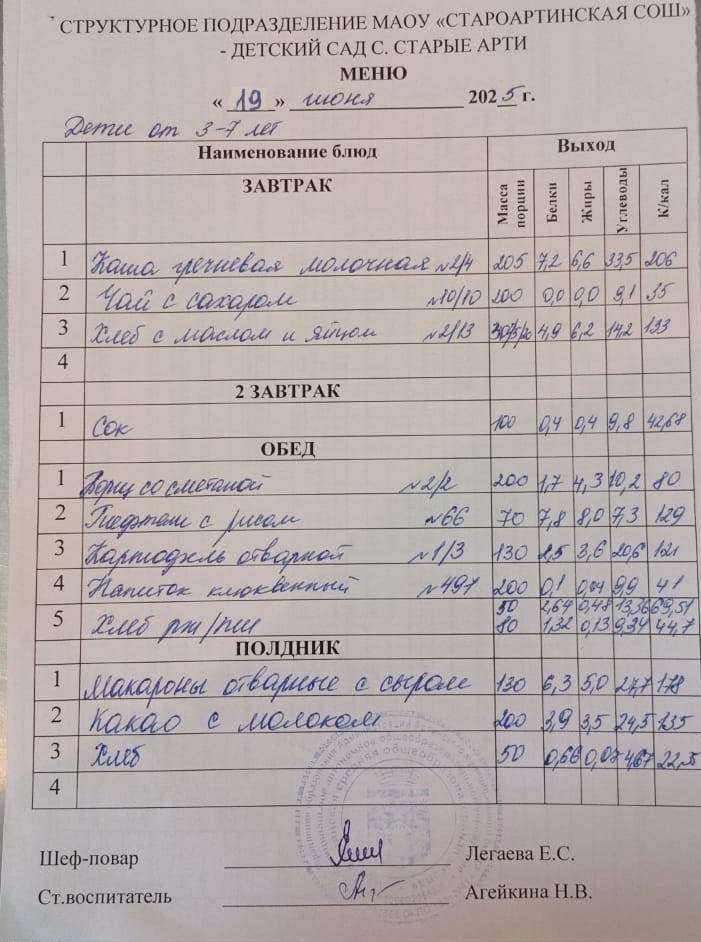 СТРУКТУРНОЕ ПОДРАЗДЕЛЕНИЕ МАОУ «СТАРОАРТИНСКАЯ СОШ»
- ДЕТСКИЙ САД С. СТАРЫЕ АРТИ
МЕНЮ
« 19 » июня 2025 г.
Дети от 3-7 лет
Наименование блюд Выход
ЗАВТРАК Масса порции Белки Жиры Углеводы К/кал
1 Каша гречневая молочная №2/4 205 7,2 6,6 33,5 206
2 Чай с сахаром №10/10 200 0,0 0,0 9,1 35
3 Хлеб с маслом и яйцом №2/13 4,9 6,2 14,2 133
4
2 ЗАВТРАК
1 Сок 100 0,4 0,4 9,8 42,68
ОБЕД
1 Борщ со сметаной №2/2 200 1,7 4,3 10,2 80
2 с рисом №66 70 7,8 8,0 7,3 129
3 Картофель отварной №1/3 130 2,5 3,6 20,6 121
4 Напиток клюквенный №497 200 0,1 0,04 9,9 41
50 2,64 0,48 13,36 69,51
5 Хлеб рж/пш 80 1,32 0,13 9,34 44,7
ПОЛДНИК
1 Макароны отварные с сыром 130 6,3 5,0 27,7 178
2 Какао с молоком 200 3,9 3,5 24,5 135
3 Хлеб 50 0,66 0,07 4,67 22,35
4
Шеф-повар Легаева Е.С.
Ст.воспитатель Агейкина Н.В.